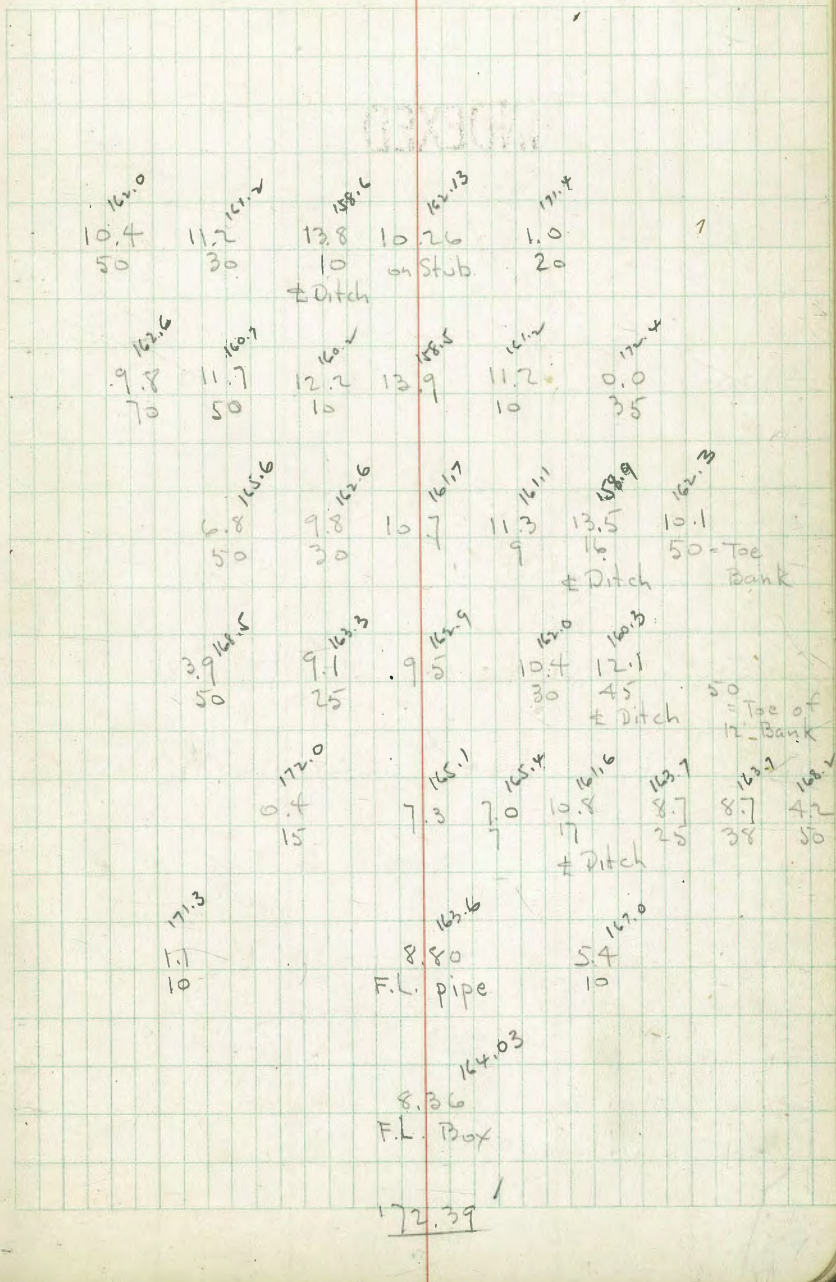 162.0 161.2 158.6 162.13 171.4
10.4 11.2 13.8 10.26 1.0 1
50 30 10 on Stub 20
℄ Ditch
162.6 160.7 160.2 158.5 161.2 172.4
9.8 11.7 12.2 13.9 11.2 0.0
70 50 10 10 35
165.6 162.6 161.7 161.1 158.9 162.3
6.8 9.8 10.7 11.3 13.5 10.1
50 30 9 16 50 = Toe
℄ Ditch Bank
168.5 163.3 162.9 162.0 160.3
3.9 9.1 9.5 10.4 12.1
50 25 30 45 50
℄ Ditch = Toe of
12 - Bank
172.0 165.1 165.4 161.6 163.7 163.7 168.2
0.4 7.3 7.0 10.8 8.7 8.7 4.2
15 7 17 25 38 50
℄ Ditch
171.3 163.6 167.0
1.1 8.80 5.4
10 F.L. pipe 10
164.03
8.36
F.L. Box
172.39